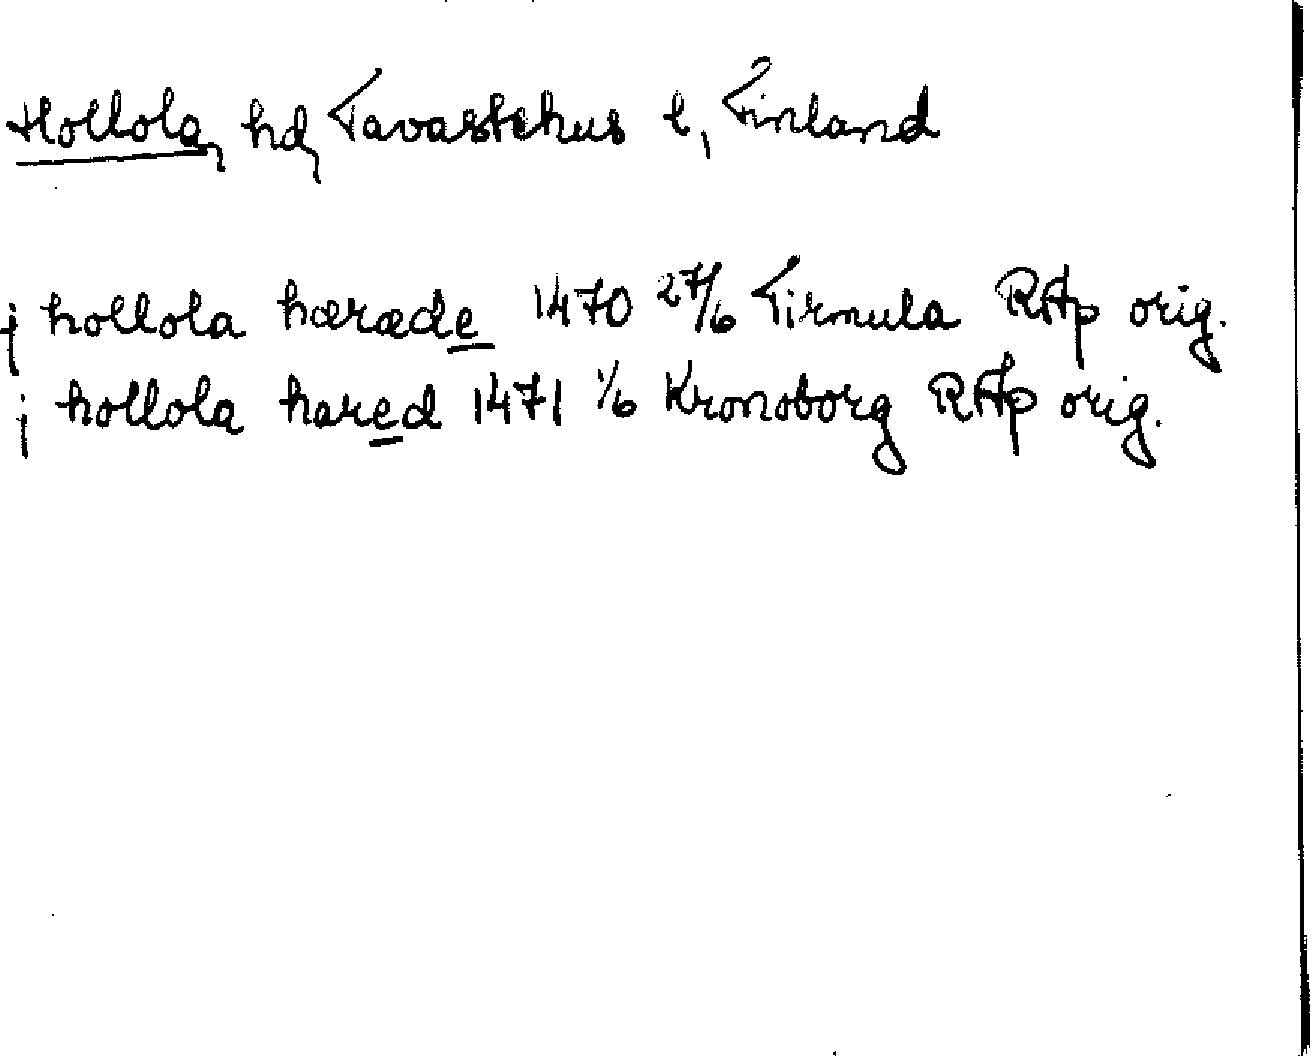 Hollola, hd, Tavastehus l, Finland
j hollola hæræde 1470 27/6 Tirmula RAp orig.
j hollola hared 1471 1/6 Kronoborg RAp orig.